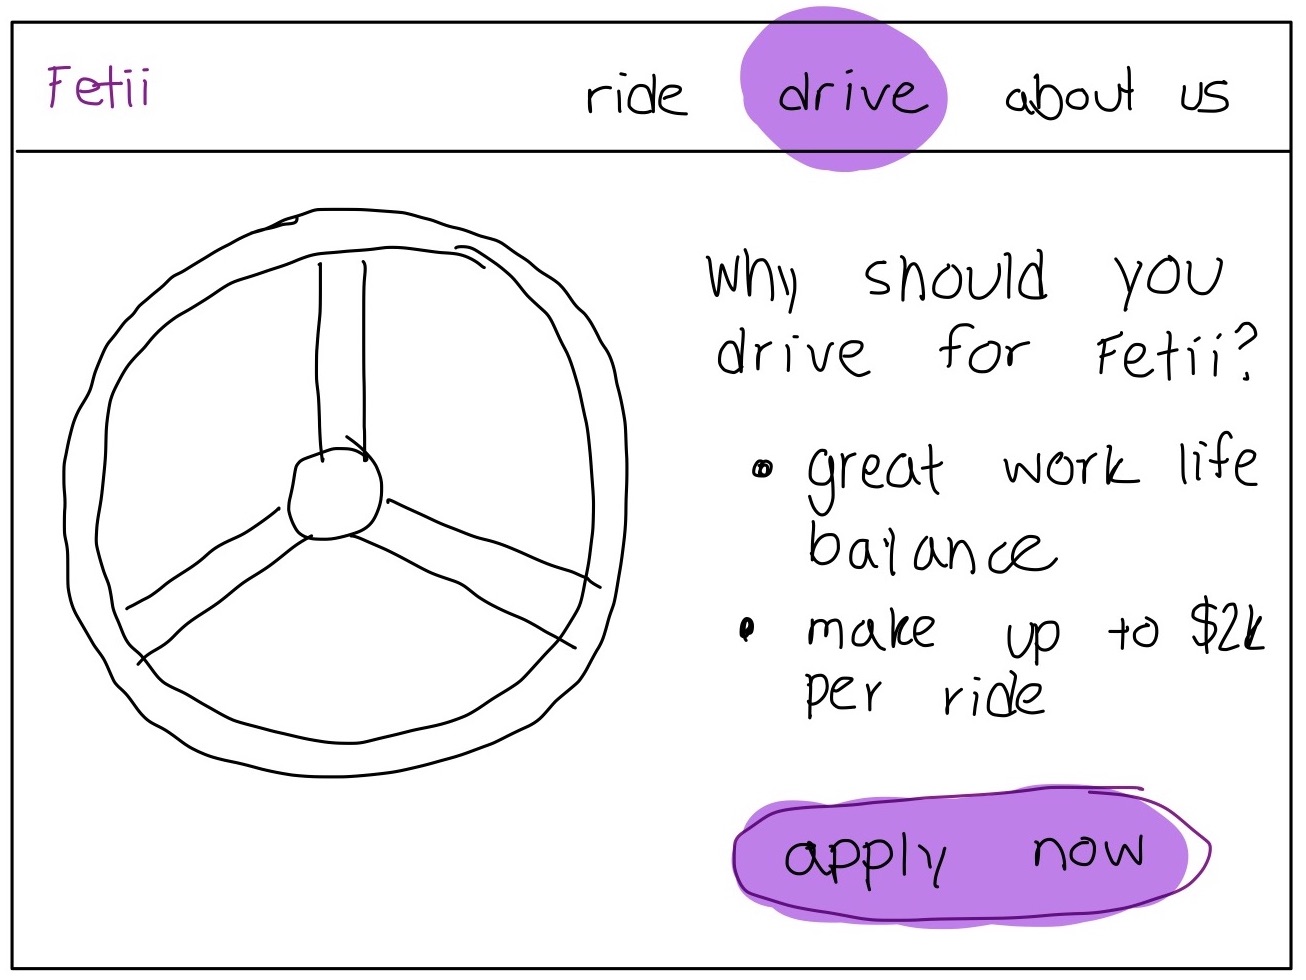 Fetii
ride drive about us
Why should you
drive for Fetii?
• great work life
balance
• make up to $2k
per ride
apply now